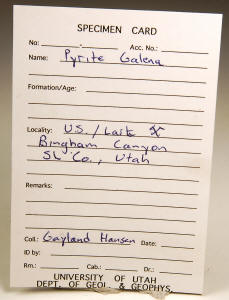 SPECIMEN CARD
No: - Acc. No.:
Name: Pyrite Galena
Formation/Age:
Locality: U.S. / Lark
Bingham Canyon
SL Co., Utah
Remarks:
Coll.: Gayland Hansen Date:
ID by:
Rm.: Cab.: Dr.:
UNIVERSITY OF UTAH
DEPT. OF GEOL. & GEOPHYS.